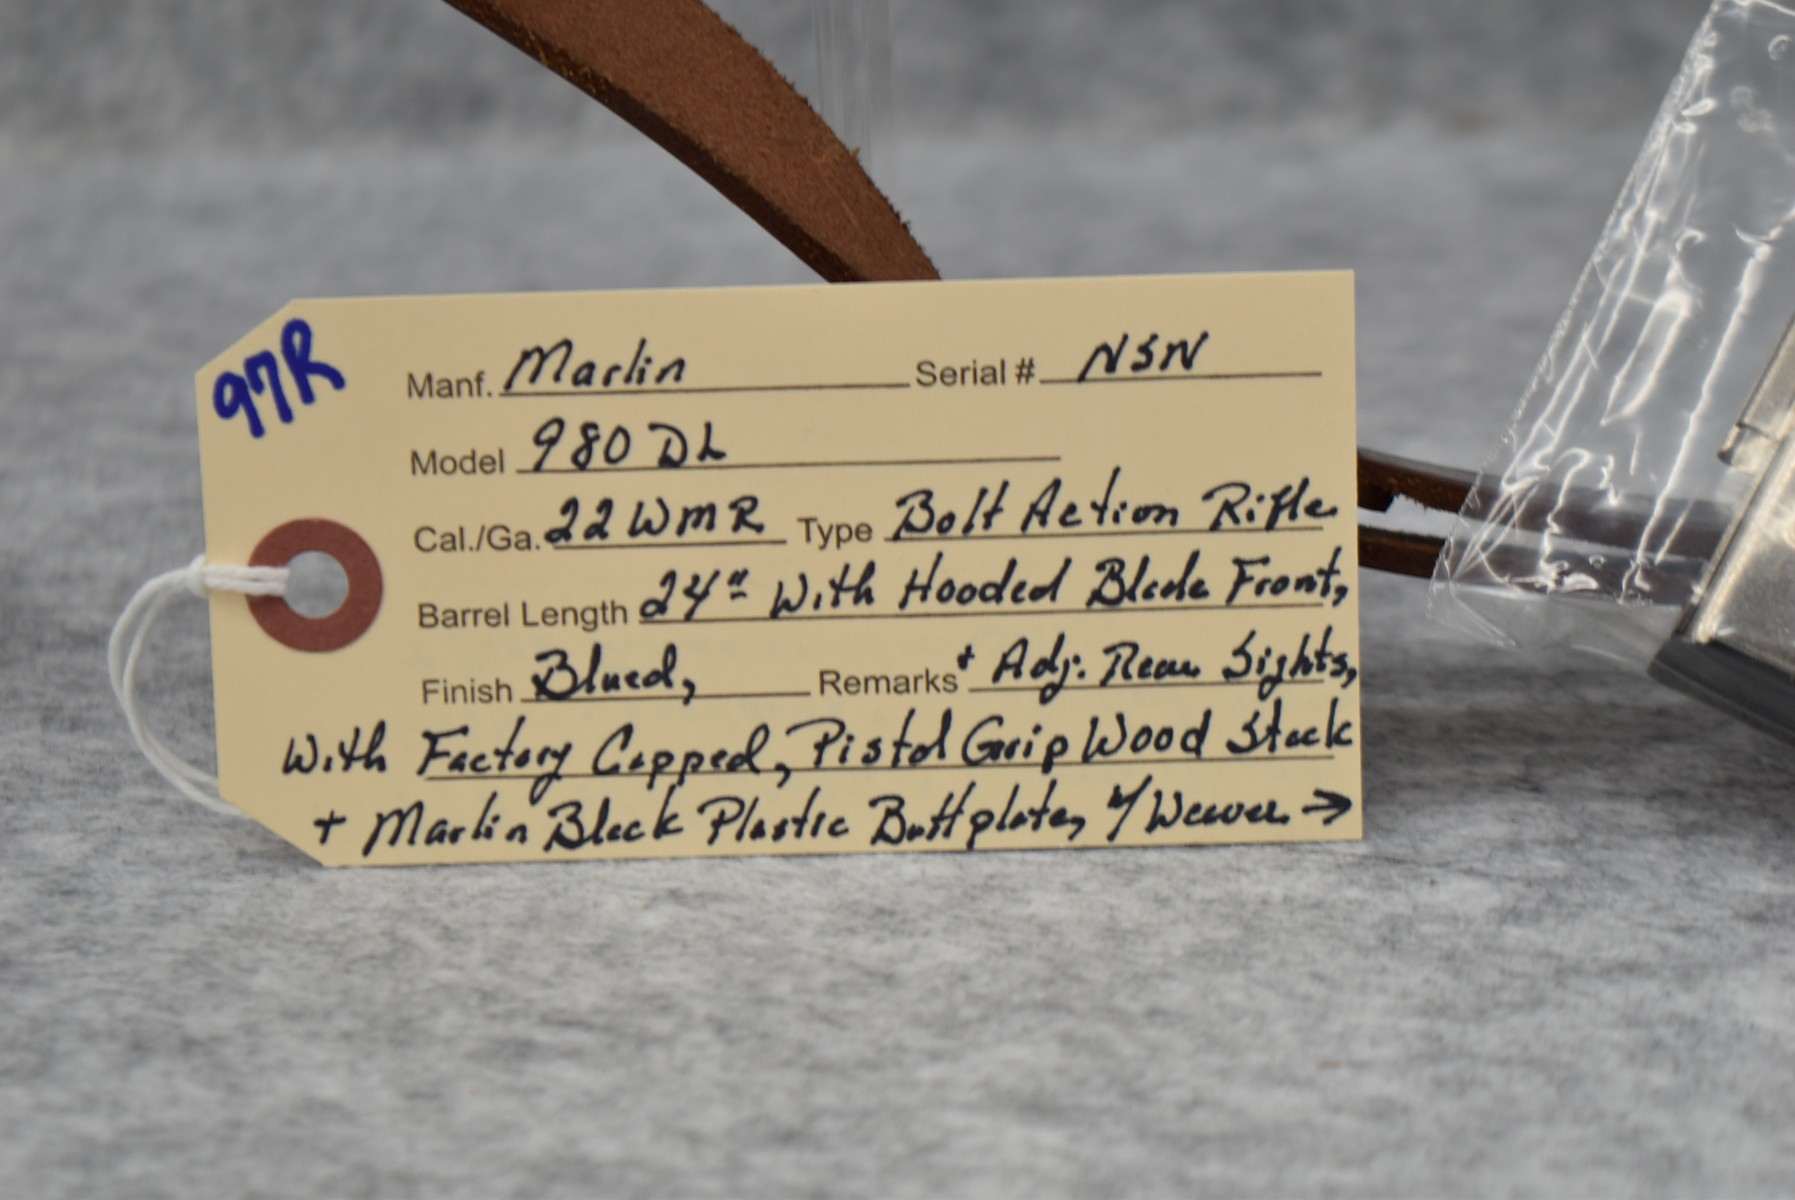 97R
Manf. Marlin Serial # NSN
Model 980 DL
Cal./Ga. 22 WMR Type Bolt Action Rifle
Barrel Length 24" With Hooded Blade Front,
Finish Blued, Remarks + Adj. Rear Sights,
With Factory Capped, Pistol Grip Wood Stock
+ Marlin Black Plastic Buttplate, w/ Weaver →